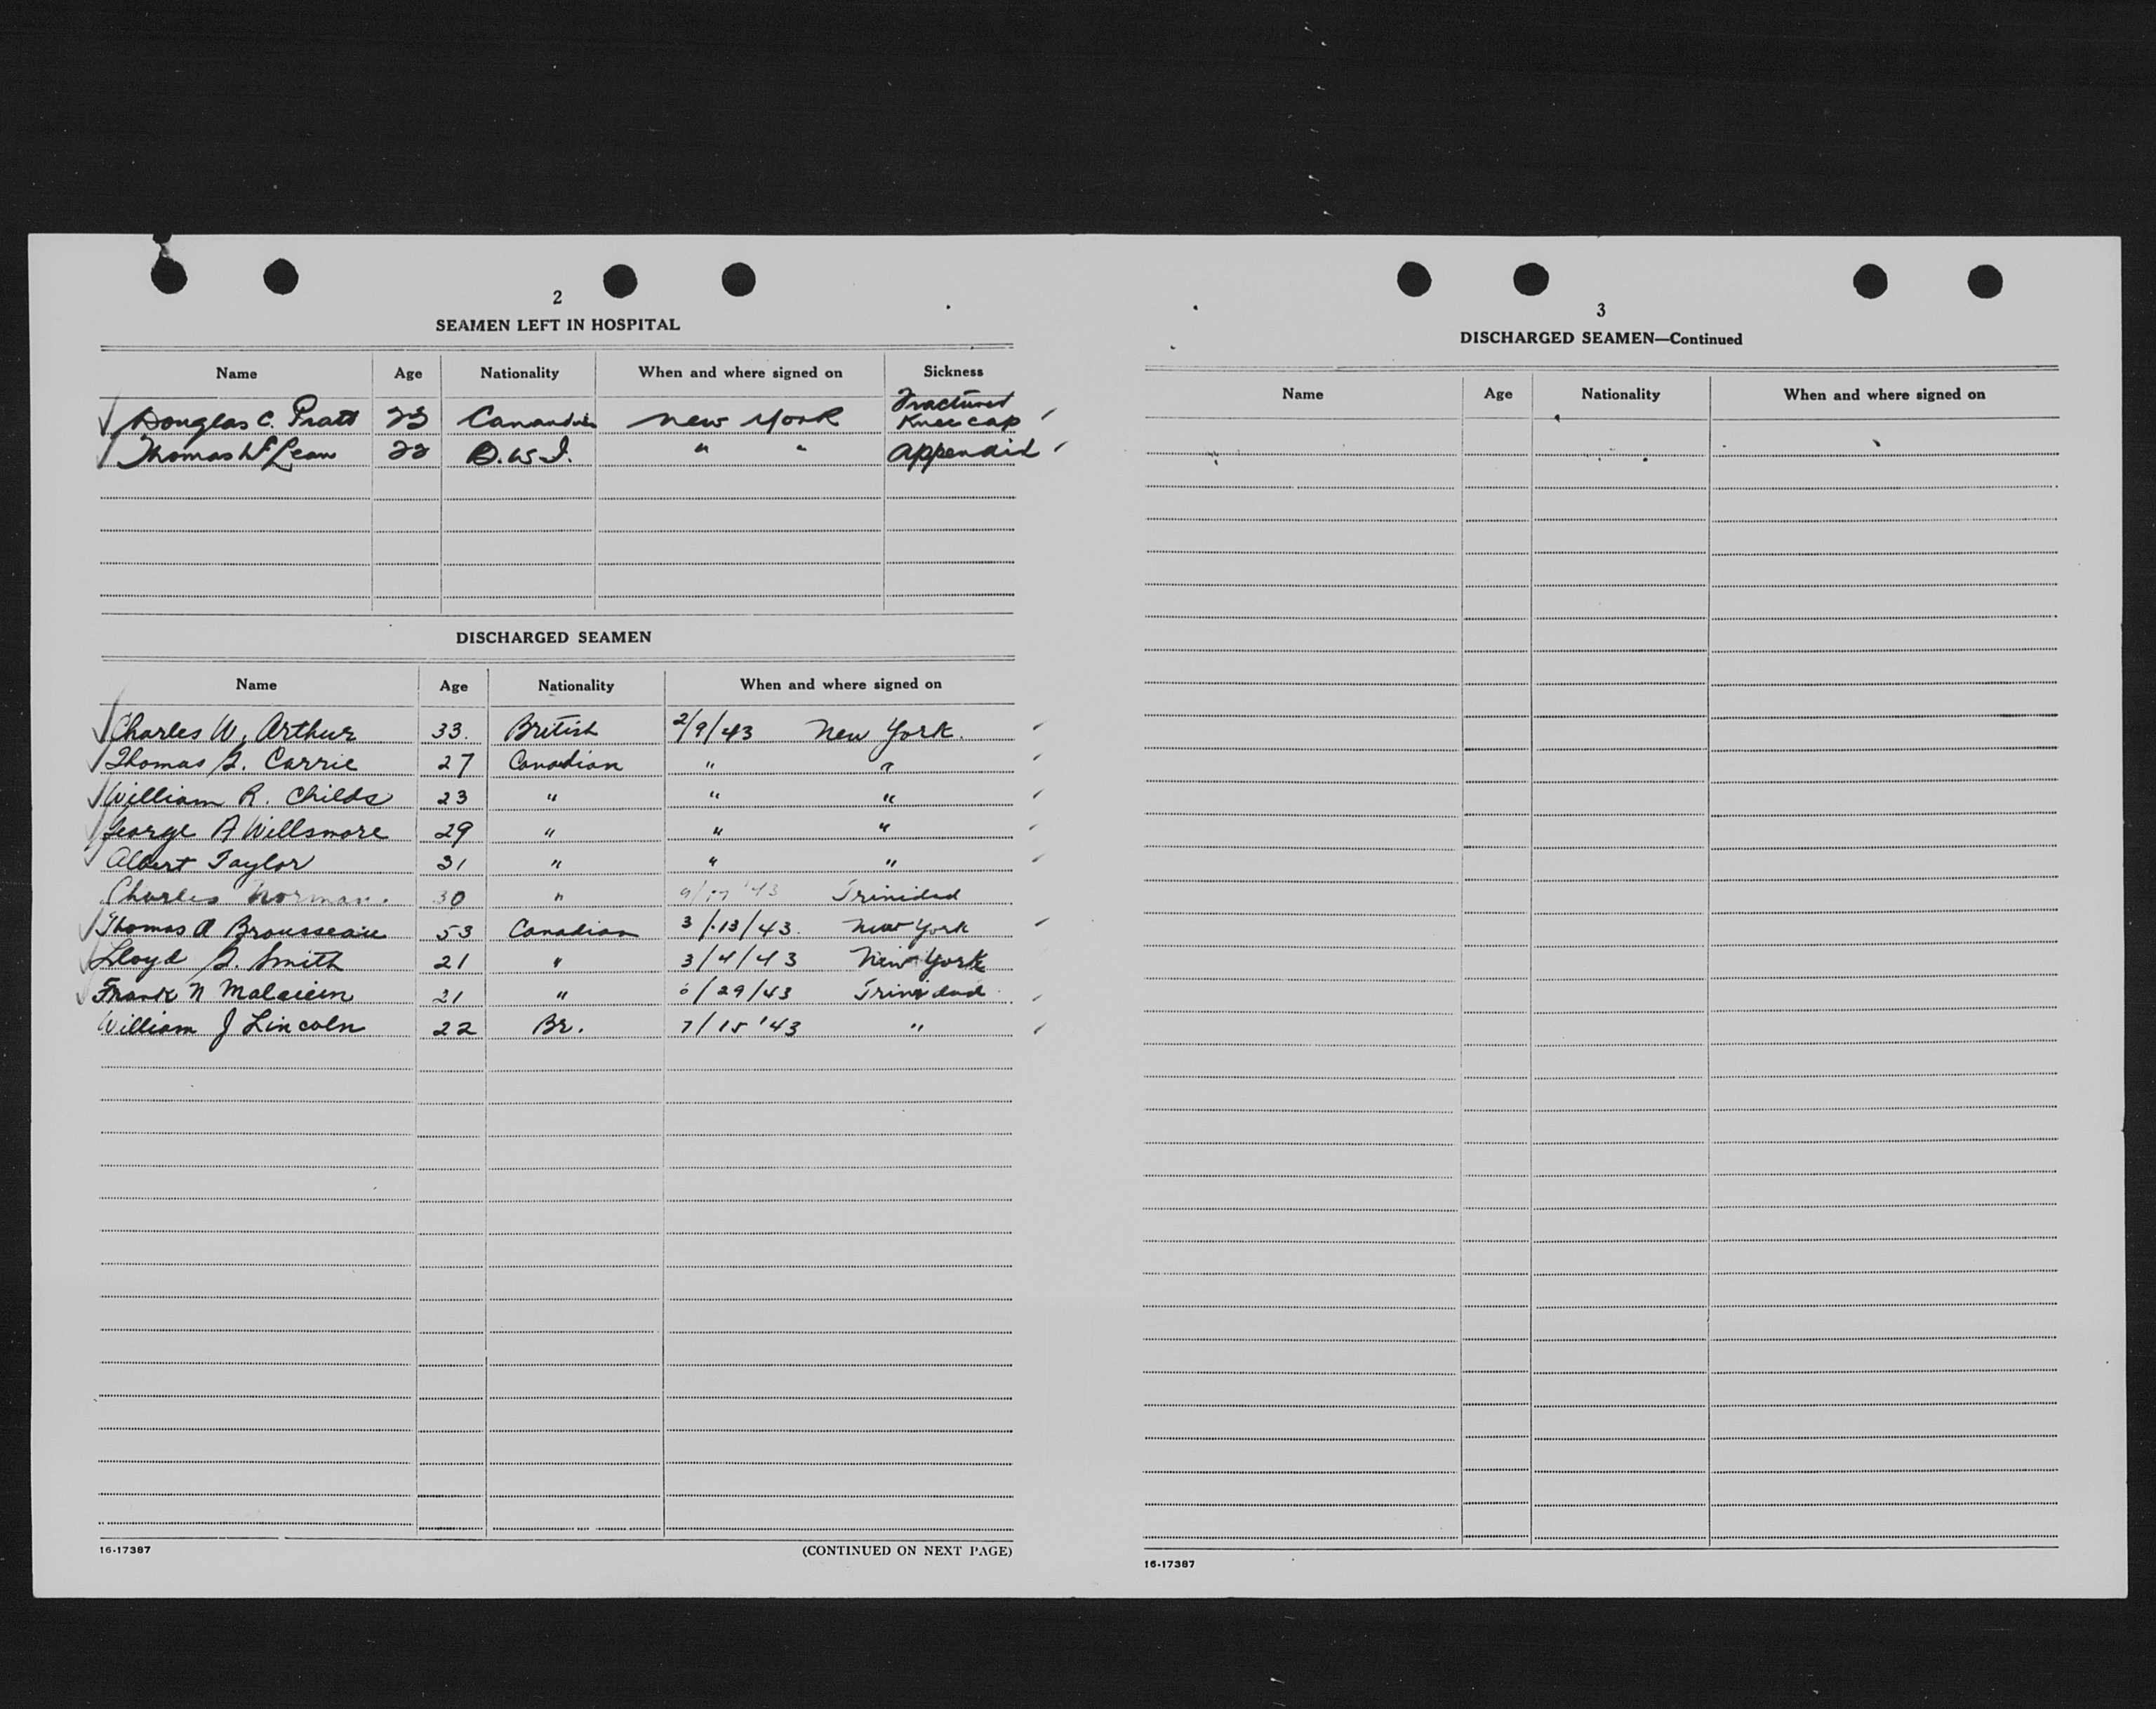 2
SEAMEN LEFT IN HOSPITAL
Name Age Nationality When and where signed on Sickness
Douglas C. Pratt 23 New York Fractured Kneecap
Thomas McLean 22 B.W.I. " " Appendid
DISCHARGED SEAMEN
Name Age Nationality When and where signed on
Charles W. Arthur 33. British 2/9/43 New York.
Thomas G. Carrie 27 Canadian " "
William R. Childs 23 " " "
George A Willsmore 29 " " "
Albert Taylor 31 " " "
Charles Norman. 30 " Trinidad
Thomas A Brousseau 53 Canadian 3/13/43. New York
Lloyd G. Smith 21 " 3/4/43 New York
Frank N 21 " 6/29/43 Trinidad
William J Lincoln 22 Br. 7/15'43 "
16-17387 (CONTINUED ON NEXT PAGE)
3
DISCHARGED SEAMEN—Continued
Name Age Nationality When and where signed on
16-17387